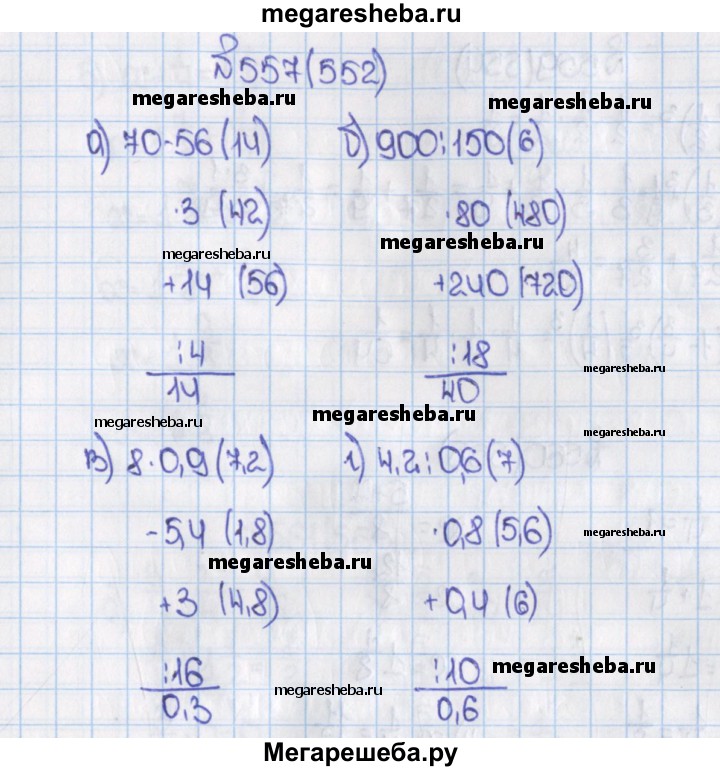 megaresheba.ru
№557(552)
megaresheba.ru megaresheba.ru
а) 70-56(14) б) 900:150(6)
·3 (42) ·80 (480)
megaresheba.ru megaresheba.ru
+14 (56) +240 (720)
:4 :18
megaresheba.ru
14 40
megaresheba.ru megaresheba.ru megaresheba.ru
в) 8·0,9(7,2) г) 4,2:0,6(7)
-5,4 (1,8) ·0,8(5,6)
megaresheba.ru
megaresheba.ru
+3 (4,8) +0,4 (6)
:16 :10
megaresheba.ru megaresheba.ru
0,3 0,6
Мегарешеба.ру